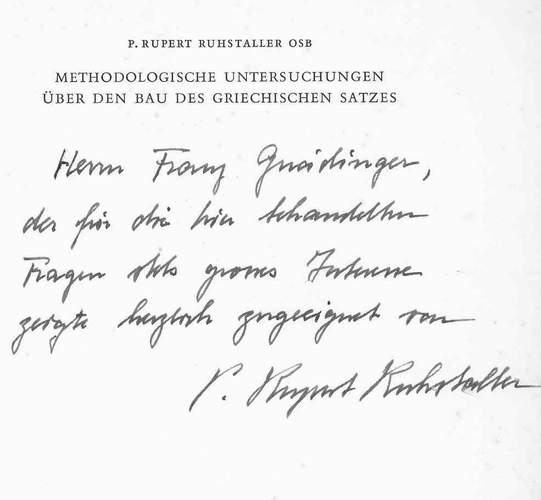 P. RUPERT RUHSTALLER OSB
METHODOLOGISCHE UNTERSUCHUNGEN
ÜBER DEN BAU DES GRIECHISCHEN SATZES
Herrn Franz Gnädinger,
der für die hier behandelten
Fragen stets grosses Interesse
zeigte herzlich zugeeignet von
P. Rupert Ruhstaller